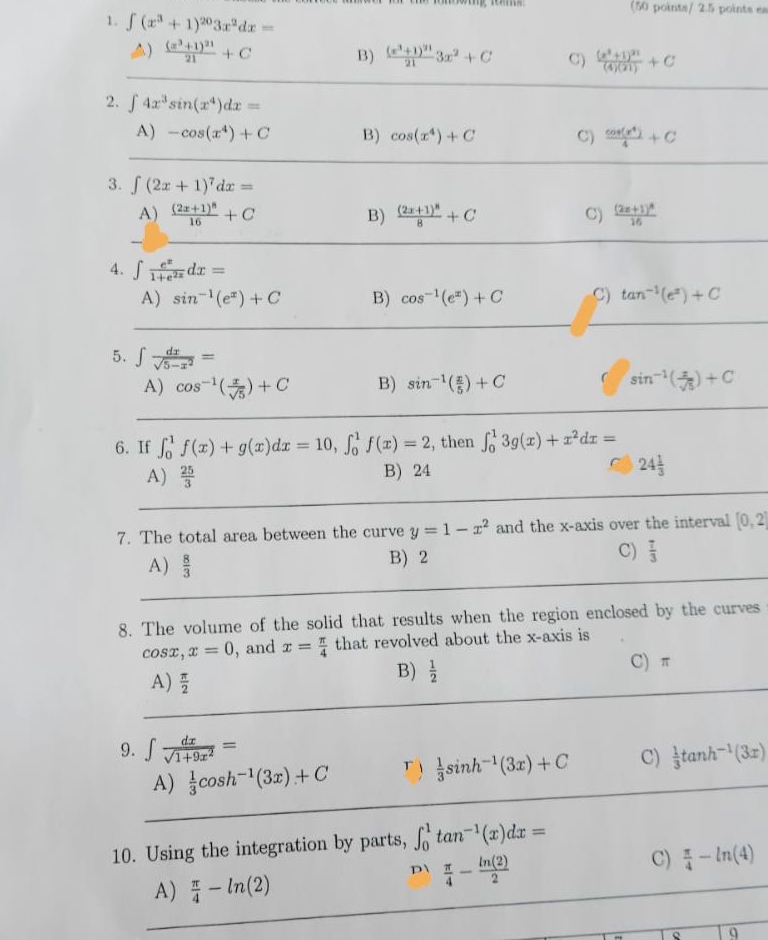 (50 points/ 2.5 points
1. ∫ (x³ + 1)²⁰3x²dx =
A) (x³+1)²¹/21 + C B) (x³+1)²¹/21 3x² + C C) (x³+1)²¹/(4)(21) + C
2. ∫ 4x³sin(x⁴)dx =
A) −cos(x⁴) + C B) cos(x⁴) + C C) cos(x⁴)/4 + C
3. ∫ (2x + 1)⁷dx =
A) (2x+1)⁸/16 + C B) (2x+1)⁸/8 + C C) (2x+1)⁸/16
4. ∫ eˣ/1+e²ˣ dx =
A) sin⁻¹(eˣ) + C B) cos⁻¹(eˣ) + C C) tan⁻¹(eˣ) + C
5. ∫ dx/√5−x² =
A) cos⁻¹(x/√5) + C B) sin⁻¹(x/5) + C sin⁻¹(x/√5) + C
6. If ∫₀¹ f(x) + g(x)dx = 10, ∫₀¹ f(x) = 2, then ∫₀¹ 3g(x) + x²dx =
A) 25/3 B) 24 24 1/3
7. The total area between the curve y = 1 − x² and the x-axis over the interval [0, 2]
A) 8/3 B) 2 C) 7/3
8. The volume of the solid that results when the region enclosed by the curves
cosx, x = 0, and x = π/4 that revolved about the x-axis is
A) π/2 B) 1/2 C) π
9. ∫ dx/√1+9x² =
A) 1/3cosh⁻¹(3x) + C 1/3sinh⁻¹(3x) + C C) 1/3tanh⁻¹(3x)
10. Using the integration by parts, ∫₀¹ tan⁻¹(x)dx =
A) π/4 − ln(2) π/4 − ln(2)/2 C) π/4 − ln(4)
8 9